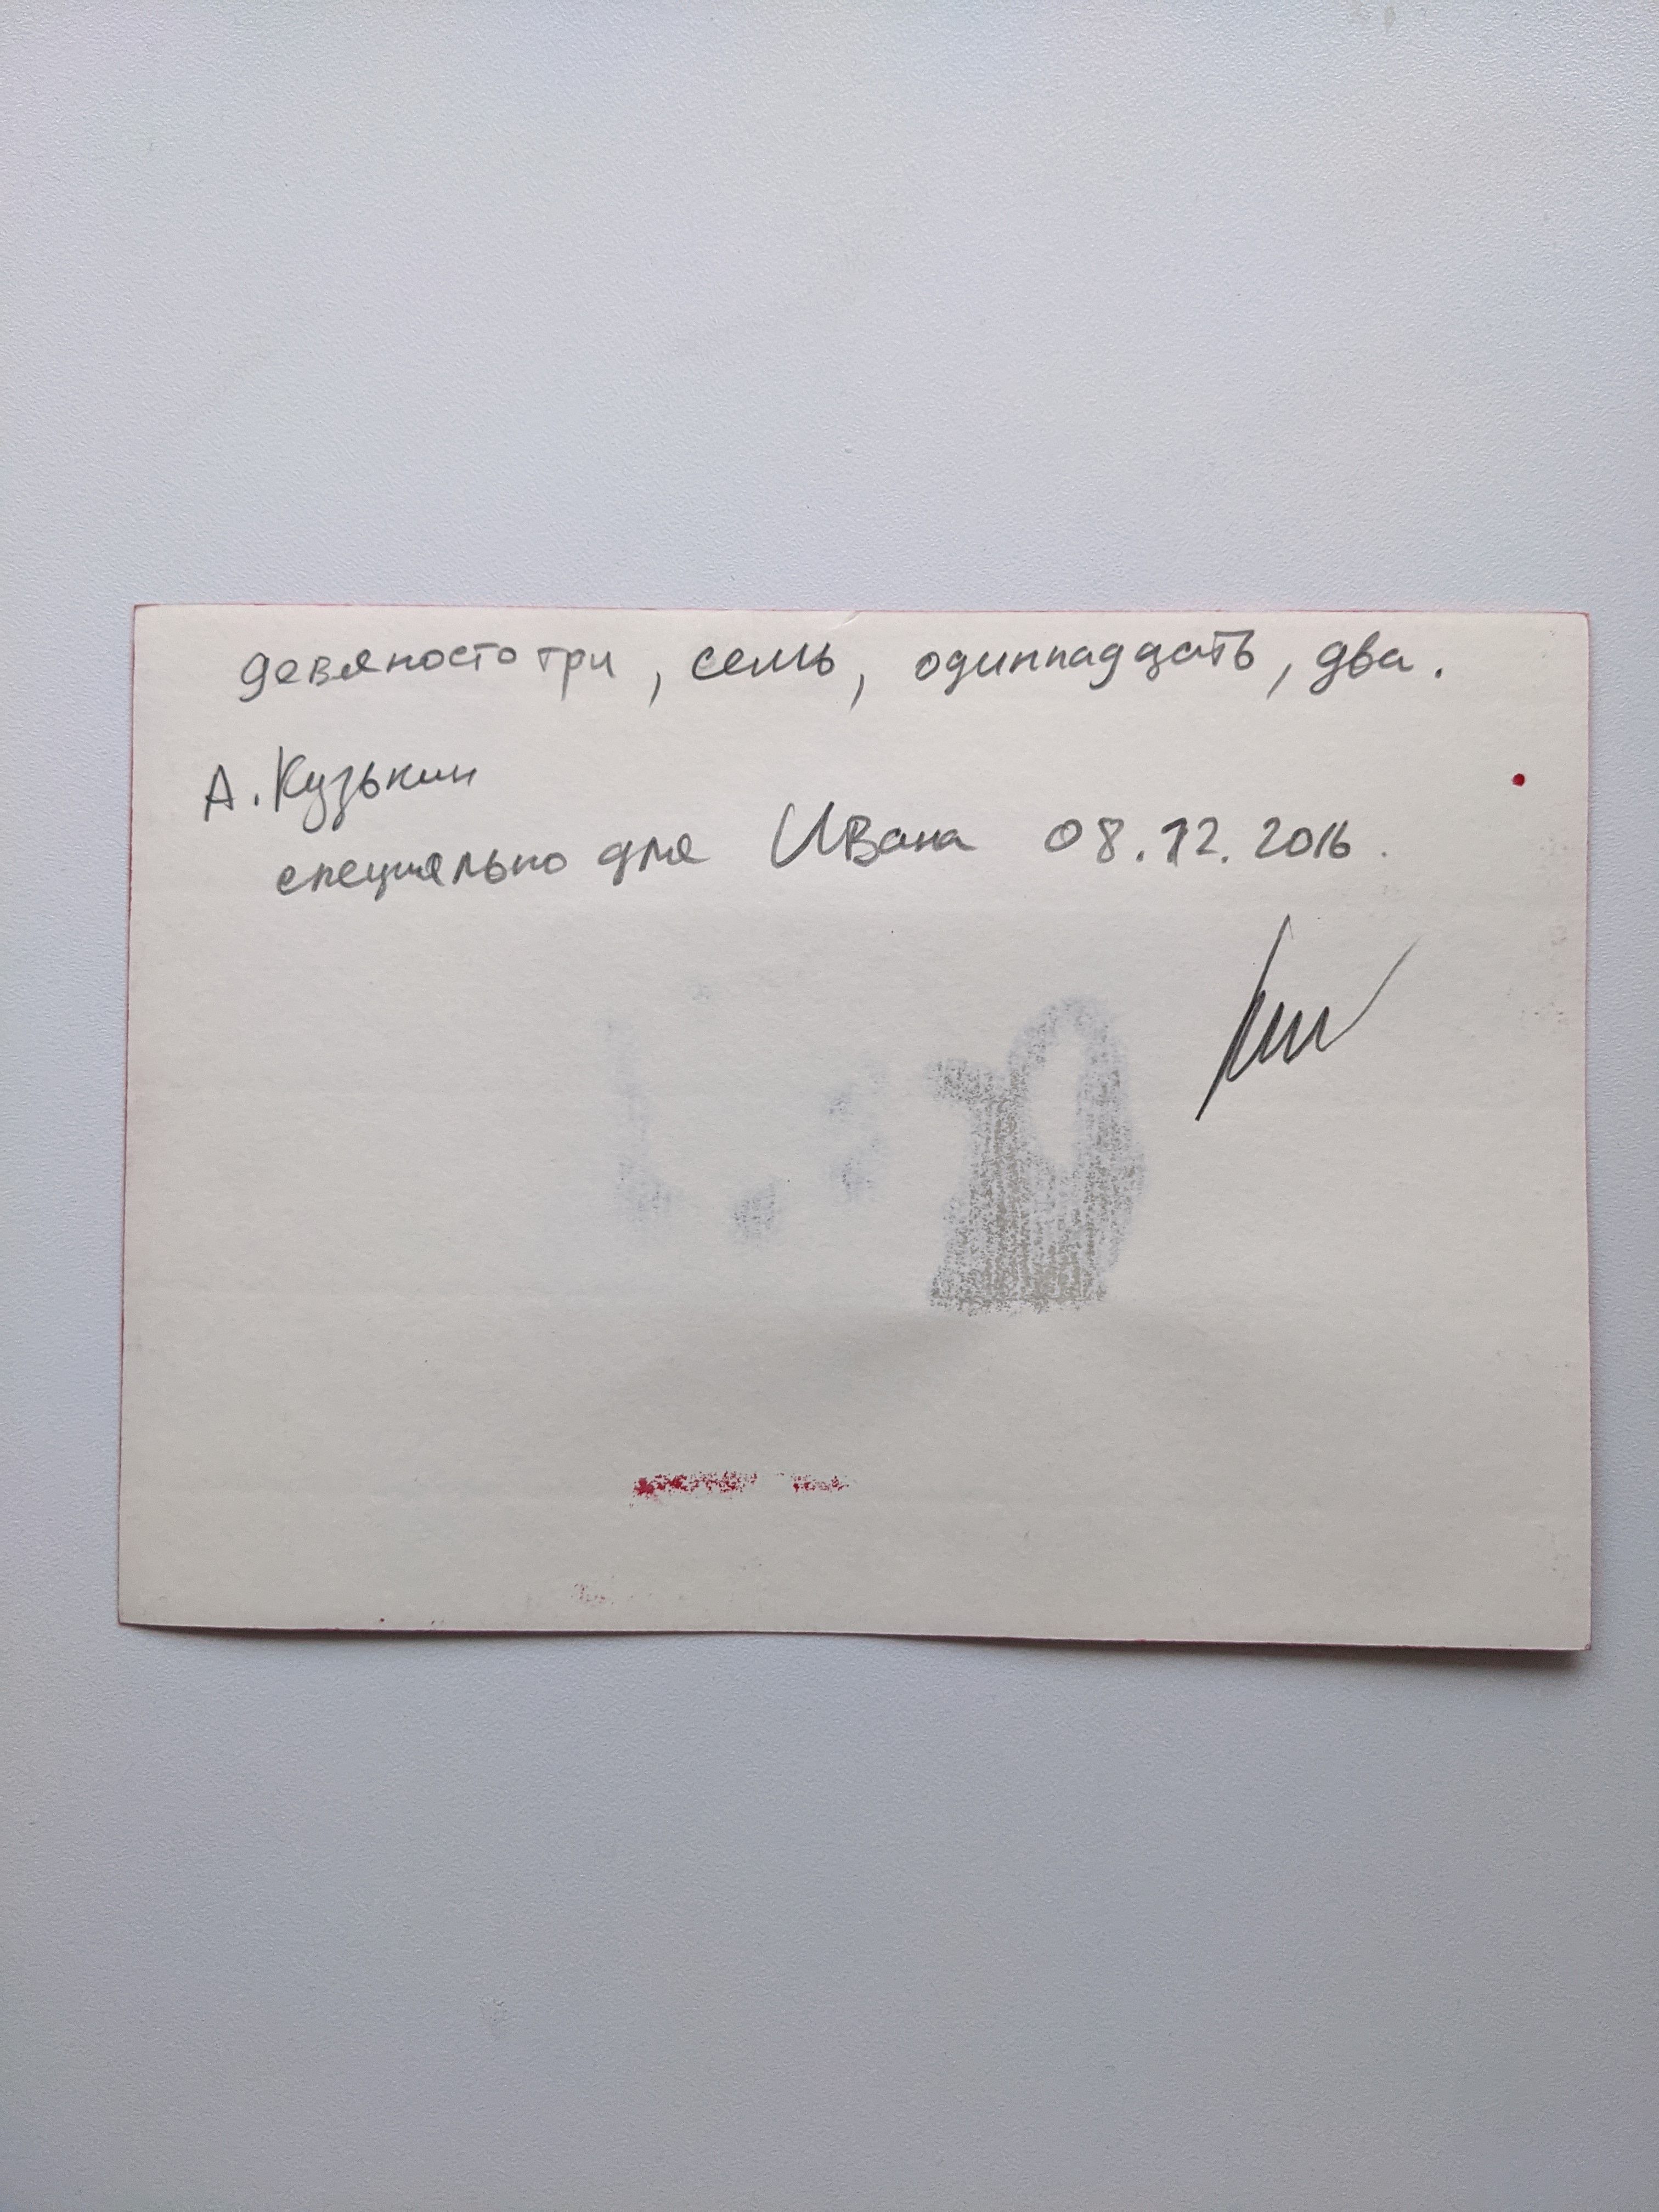 девяносто три, семь, одиннадцать, два.
А. Кузькин
специально для Ивана 08.12.2016.